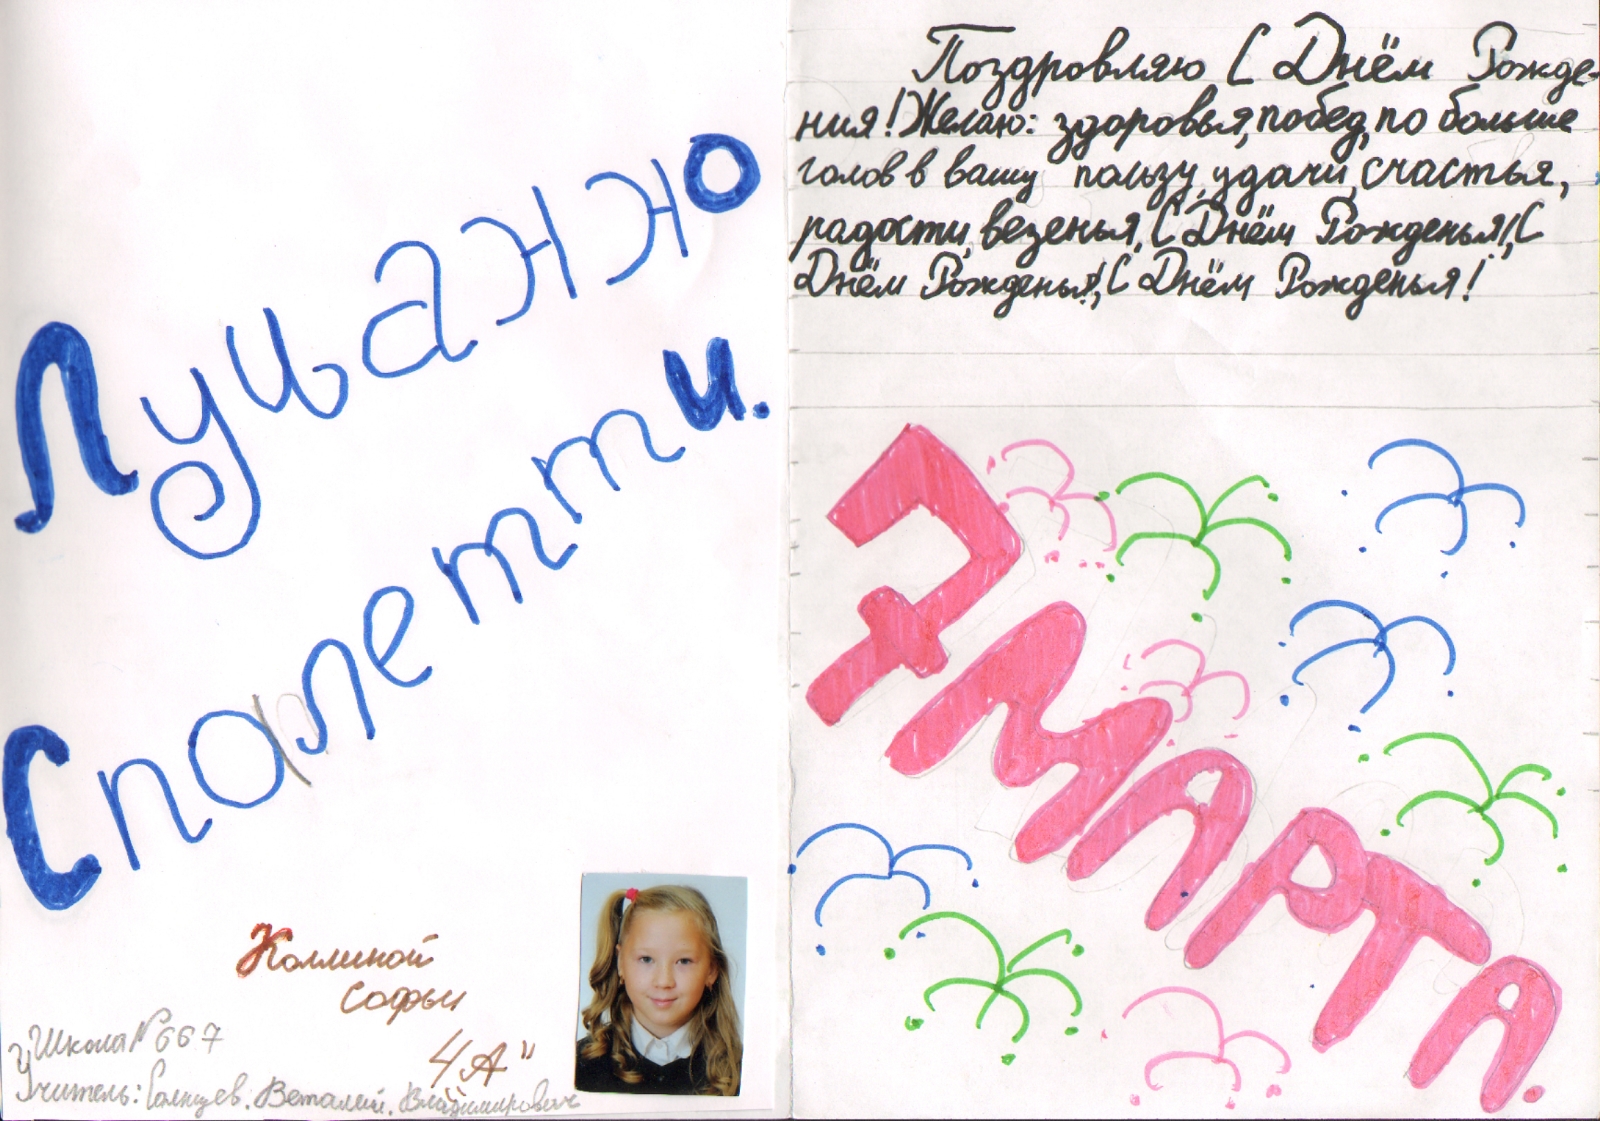 Луцанню
Спалетти.
Коллиной
Софьи
4"А"
Школа №667
Учитель: Солнцев. Веталий. Владимирович
Поздровляю С Днём Рожде-
ния! Желаю: здоровья, побед, по больше
голов в вашу пользу, удачи, счастья,
радости, везенья, С Днём Рожденья!, С
Днём Рожденья!, С Днём Рожденья!
7 МАРТА.